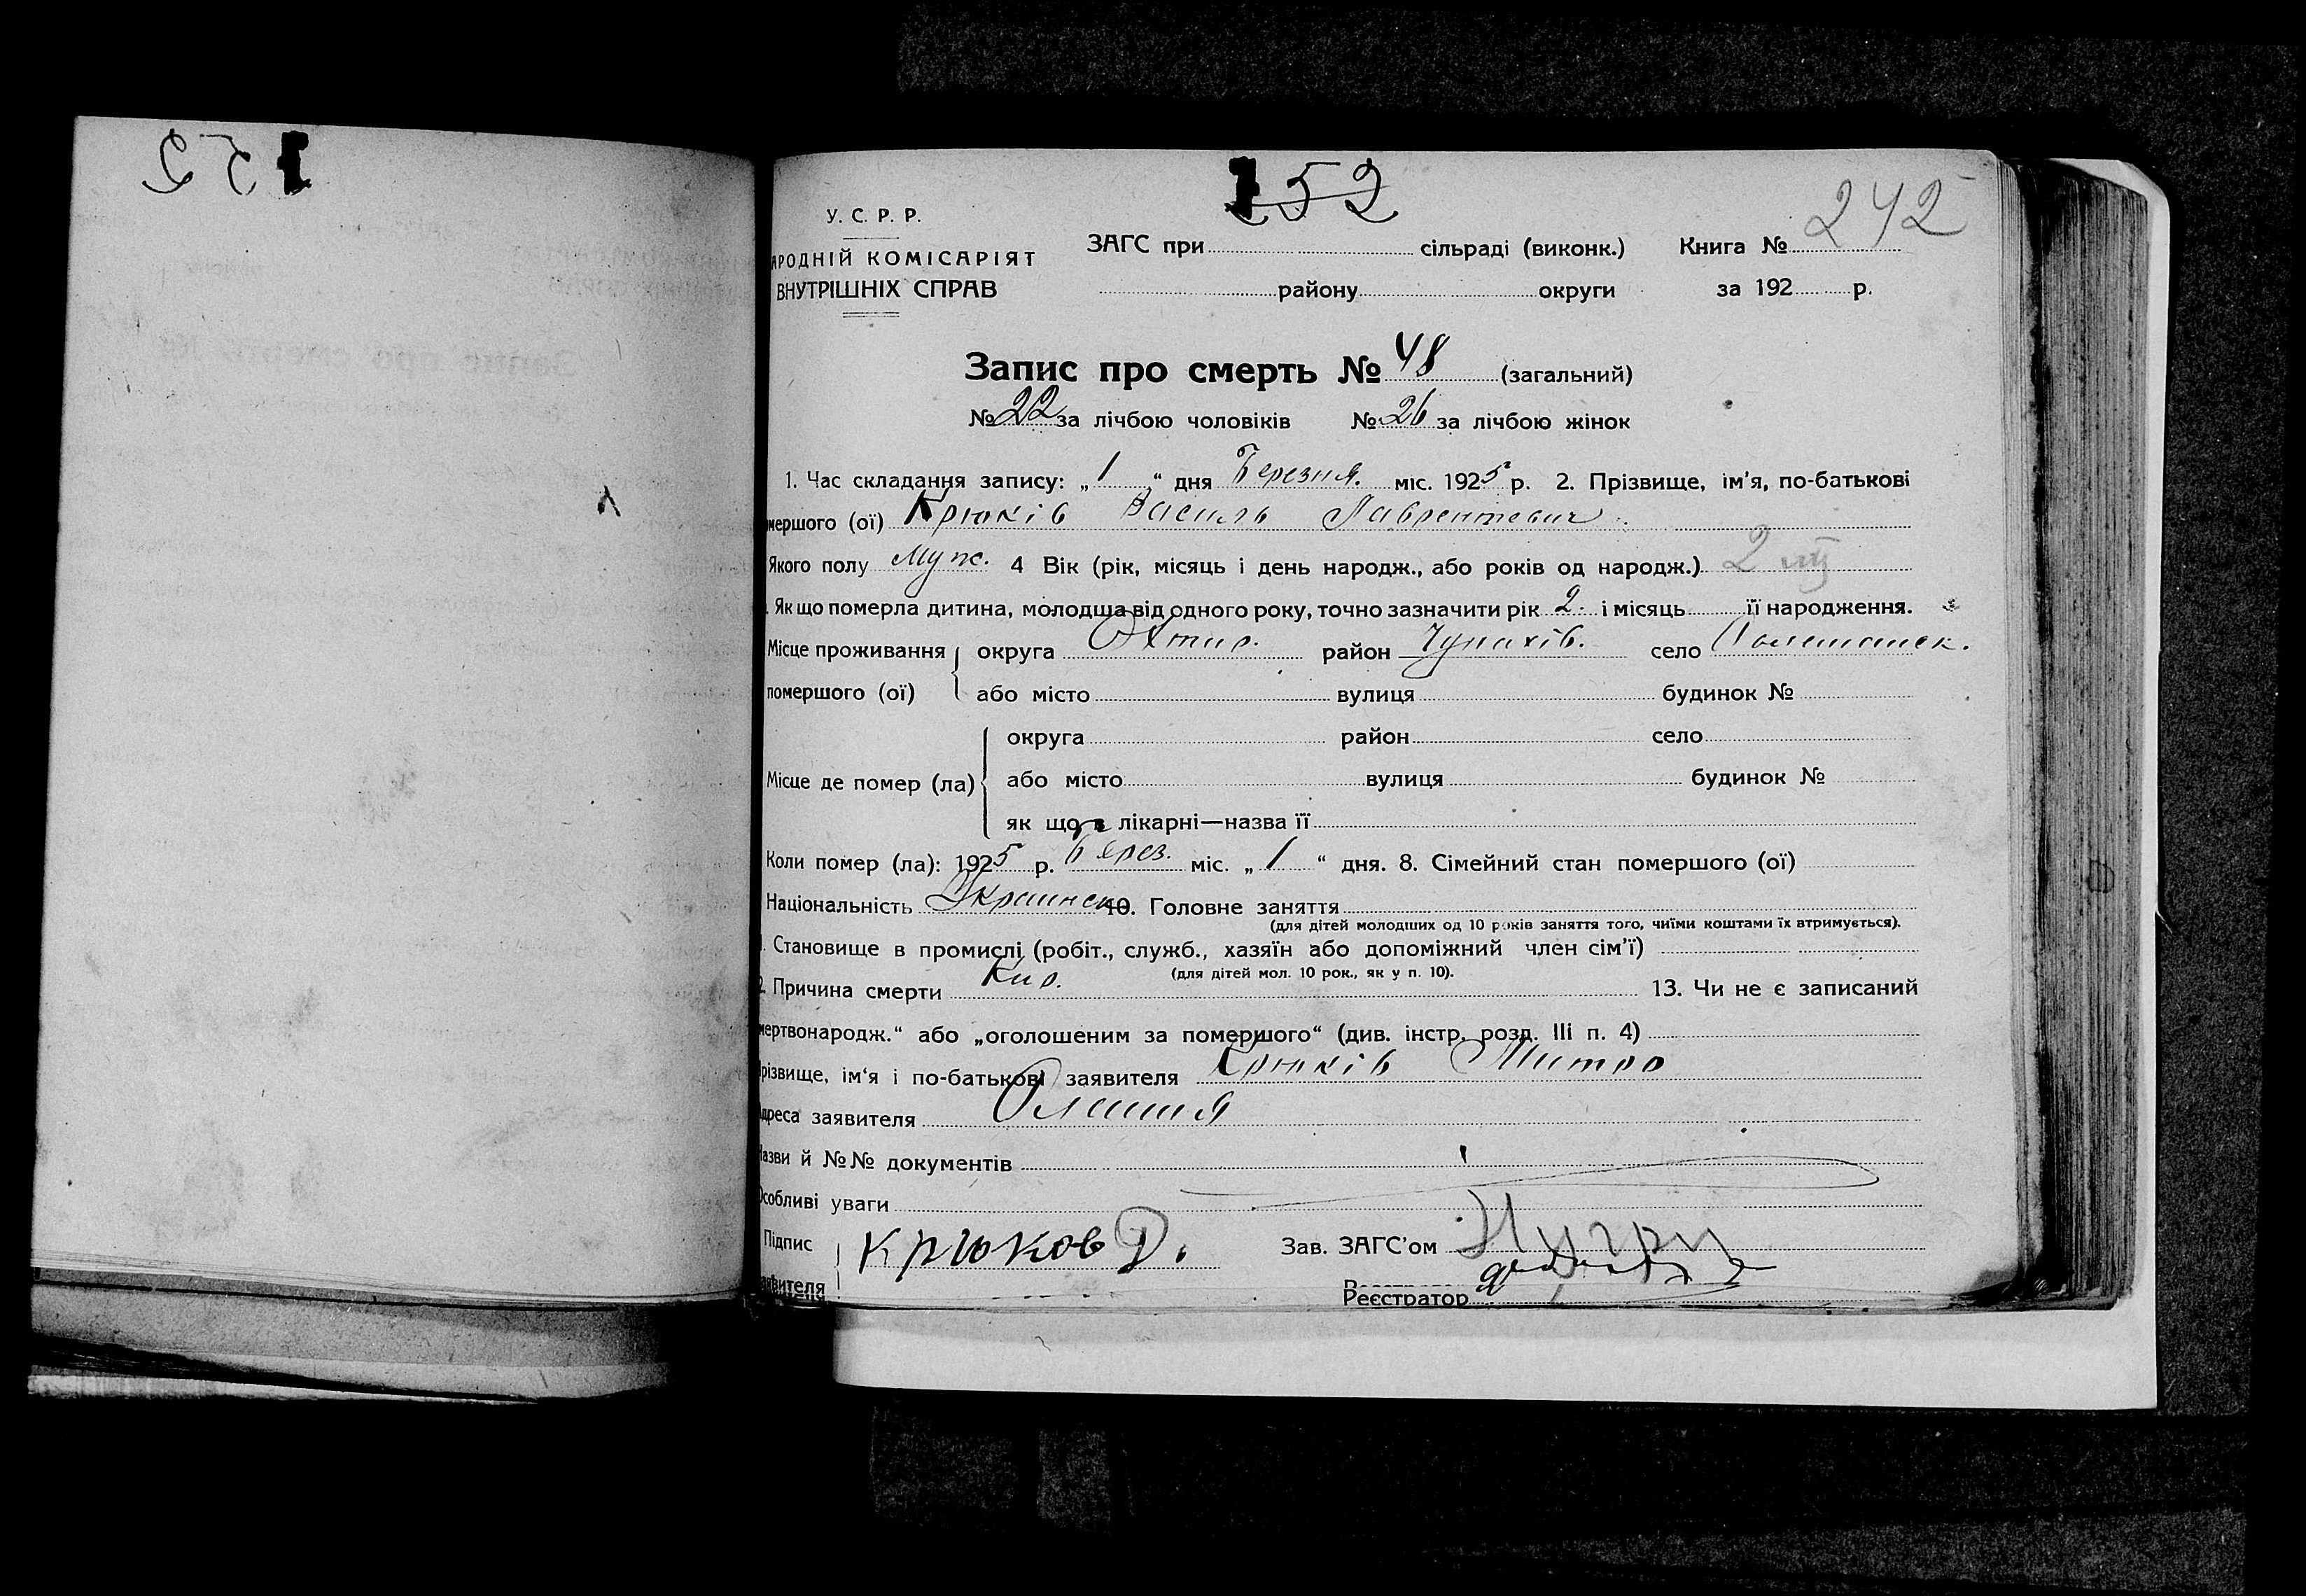 152
242
У. С. Р. Р.
АРОДНІЙ КОМІСАРІЯТ
ВНУТРІШНІХ СПРАВ
ЗАГС при сільраді (виконк.) Книга №
району округи за 192 р.
Запис про смерть № 48 (загальний)
№ 22 за лічбою чоловіків № 26 за лічбою жінок
1. Час складання запису: „ 1 “ дня Березня. міс. 1925 р. 2. Прізвище, ім’я, по-батькові
мершого (ої) Крюків Василь Лаврентевич
Якого полу Муж. 4 Вік (рік, місяць і день народж., або років од народж.) 2
Як що померла дитина, молодша від одного року, точно зазначити рік 2. і місяць її народження.
Місце проживання округа Охтир. район Чупахів. село
помершого (ої) або місто вулиця будинок №
округа район село
Місце де помер (ла) або місто вулиця будинок №
як що в лікарні—назва її
Коли помер (ла): 1925 р. Берез. міс. „ 1 “ дня. 8. Сімейний стан помершого (ої)
Національність Украинск 10. Головне заняття
(для дітей молодших од 10 років заняття того, чиїми коштами їх втримується).
Становище в промислі (робіт., служб., хазяїн або допоміжний член сім’ї)
(для дітей мол. 10 рок., як у п. 10).
2. Причина смерти Кир. 13. Чи не є записаний
мертвонародж.“ або „оголошеним за помершого“ (див. інстр. розд. III п. 4)
різвище, ім‘я і по-батькові заявителя Крюків Митро
дреса заявителя Олешня
Назви й №№ документів
Особливі уваги
Підпис Крюков Д. Зав. ЗАГС’ом
заявителя
Реєстратор